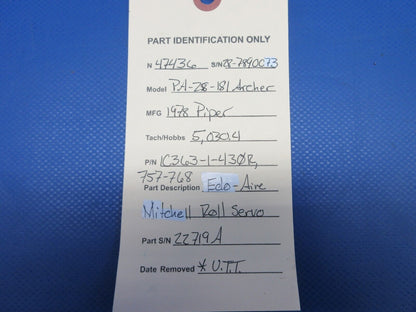 PART IDENTIFICATION ONLY
N 47436 S/N 28-7890073
Model PA-28-181 Archer
MFG 1978 Piper
Tach/Hobbs 5,030.4
P/N 1C363-1-430R,
757-768
Part Description Edo-Aire
Mitchell Roll Servo
Part S/N 22719A
Date Removed * U.T.T.